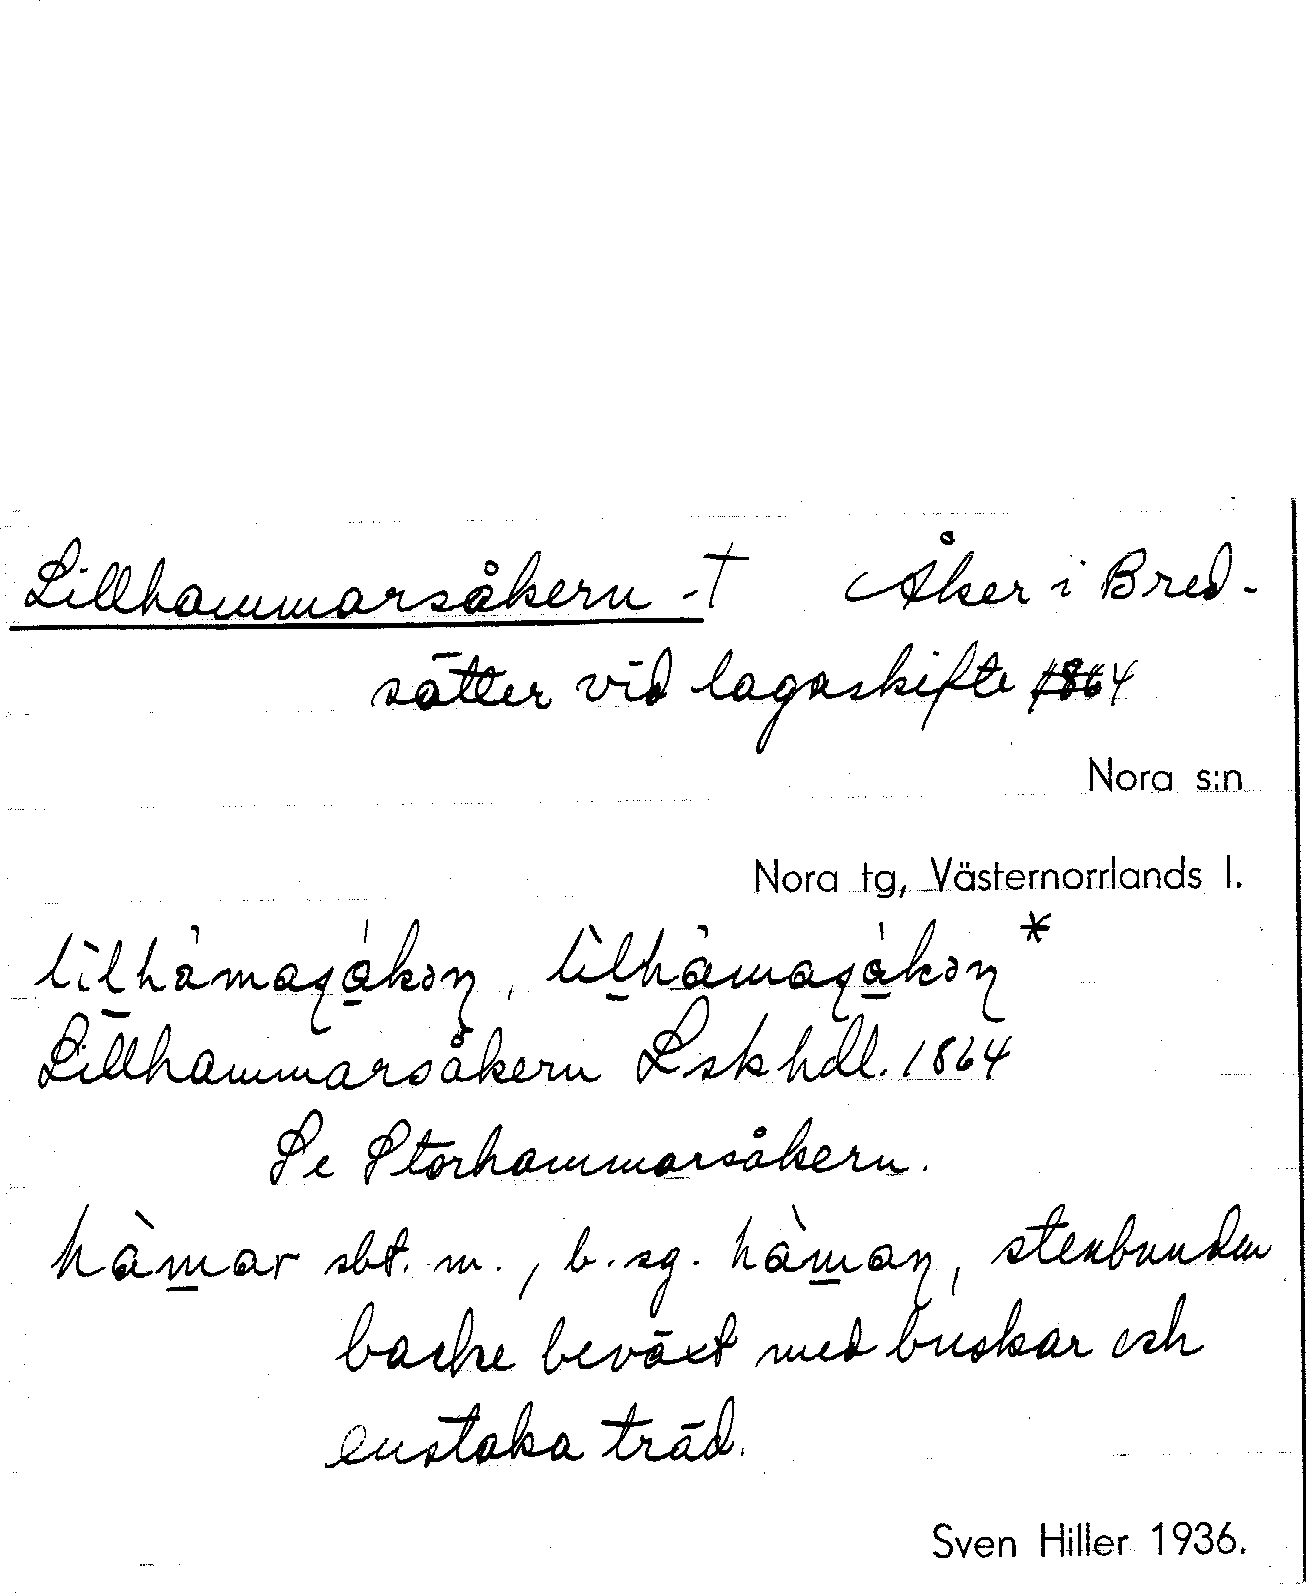 Lillhammarsåkern -† Åker i Bred-
sätter vid lagaskifte 1864
Nora s:n
Nora tg, Västernorrlands l.
Lillhammarsåkern Lskhdl. 1864
Se Storhammarsåkern.
hàmar sbt. m., b. sg. hàmaɳ, stenbunden
backe beväxt med buskar och
enstaka träd.
Sven Hiller 1936.